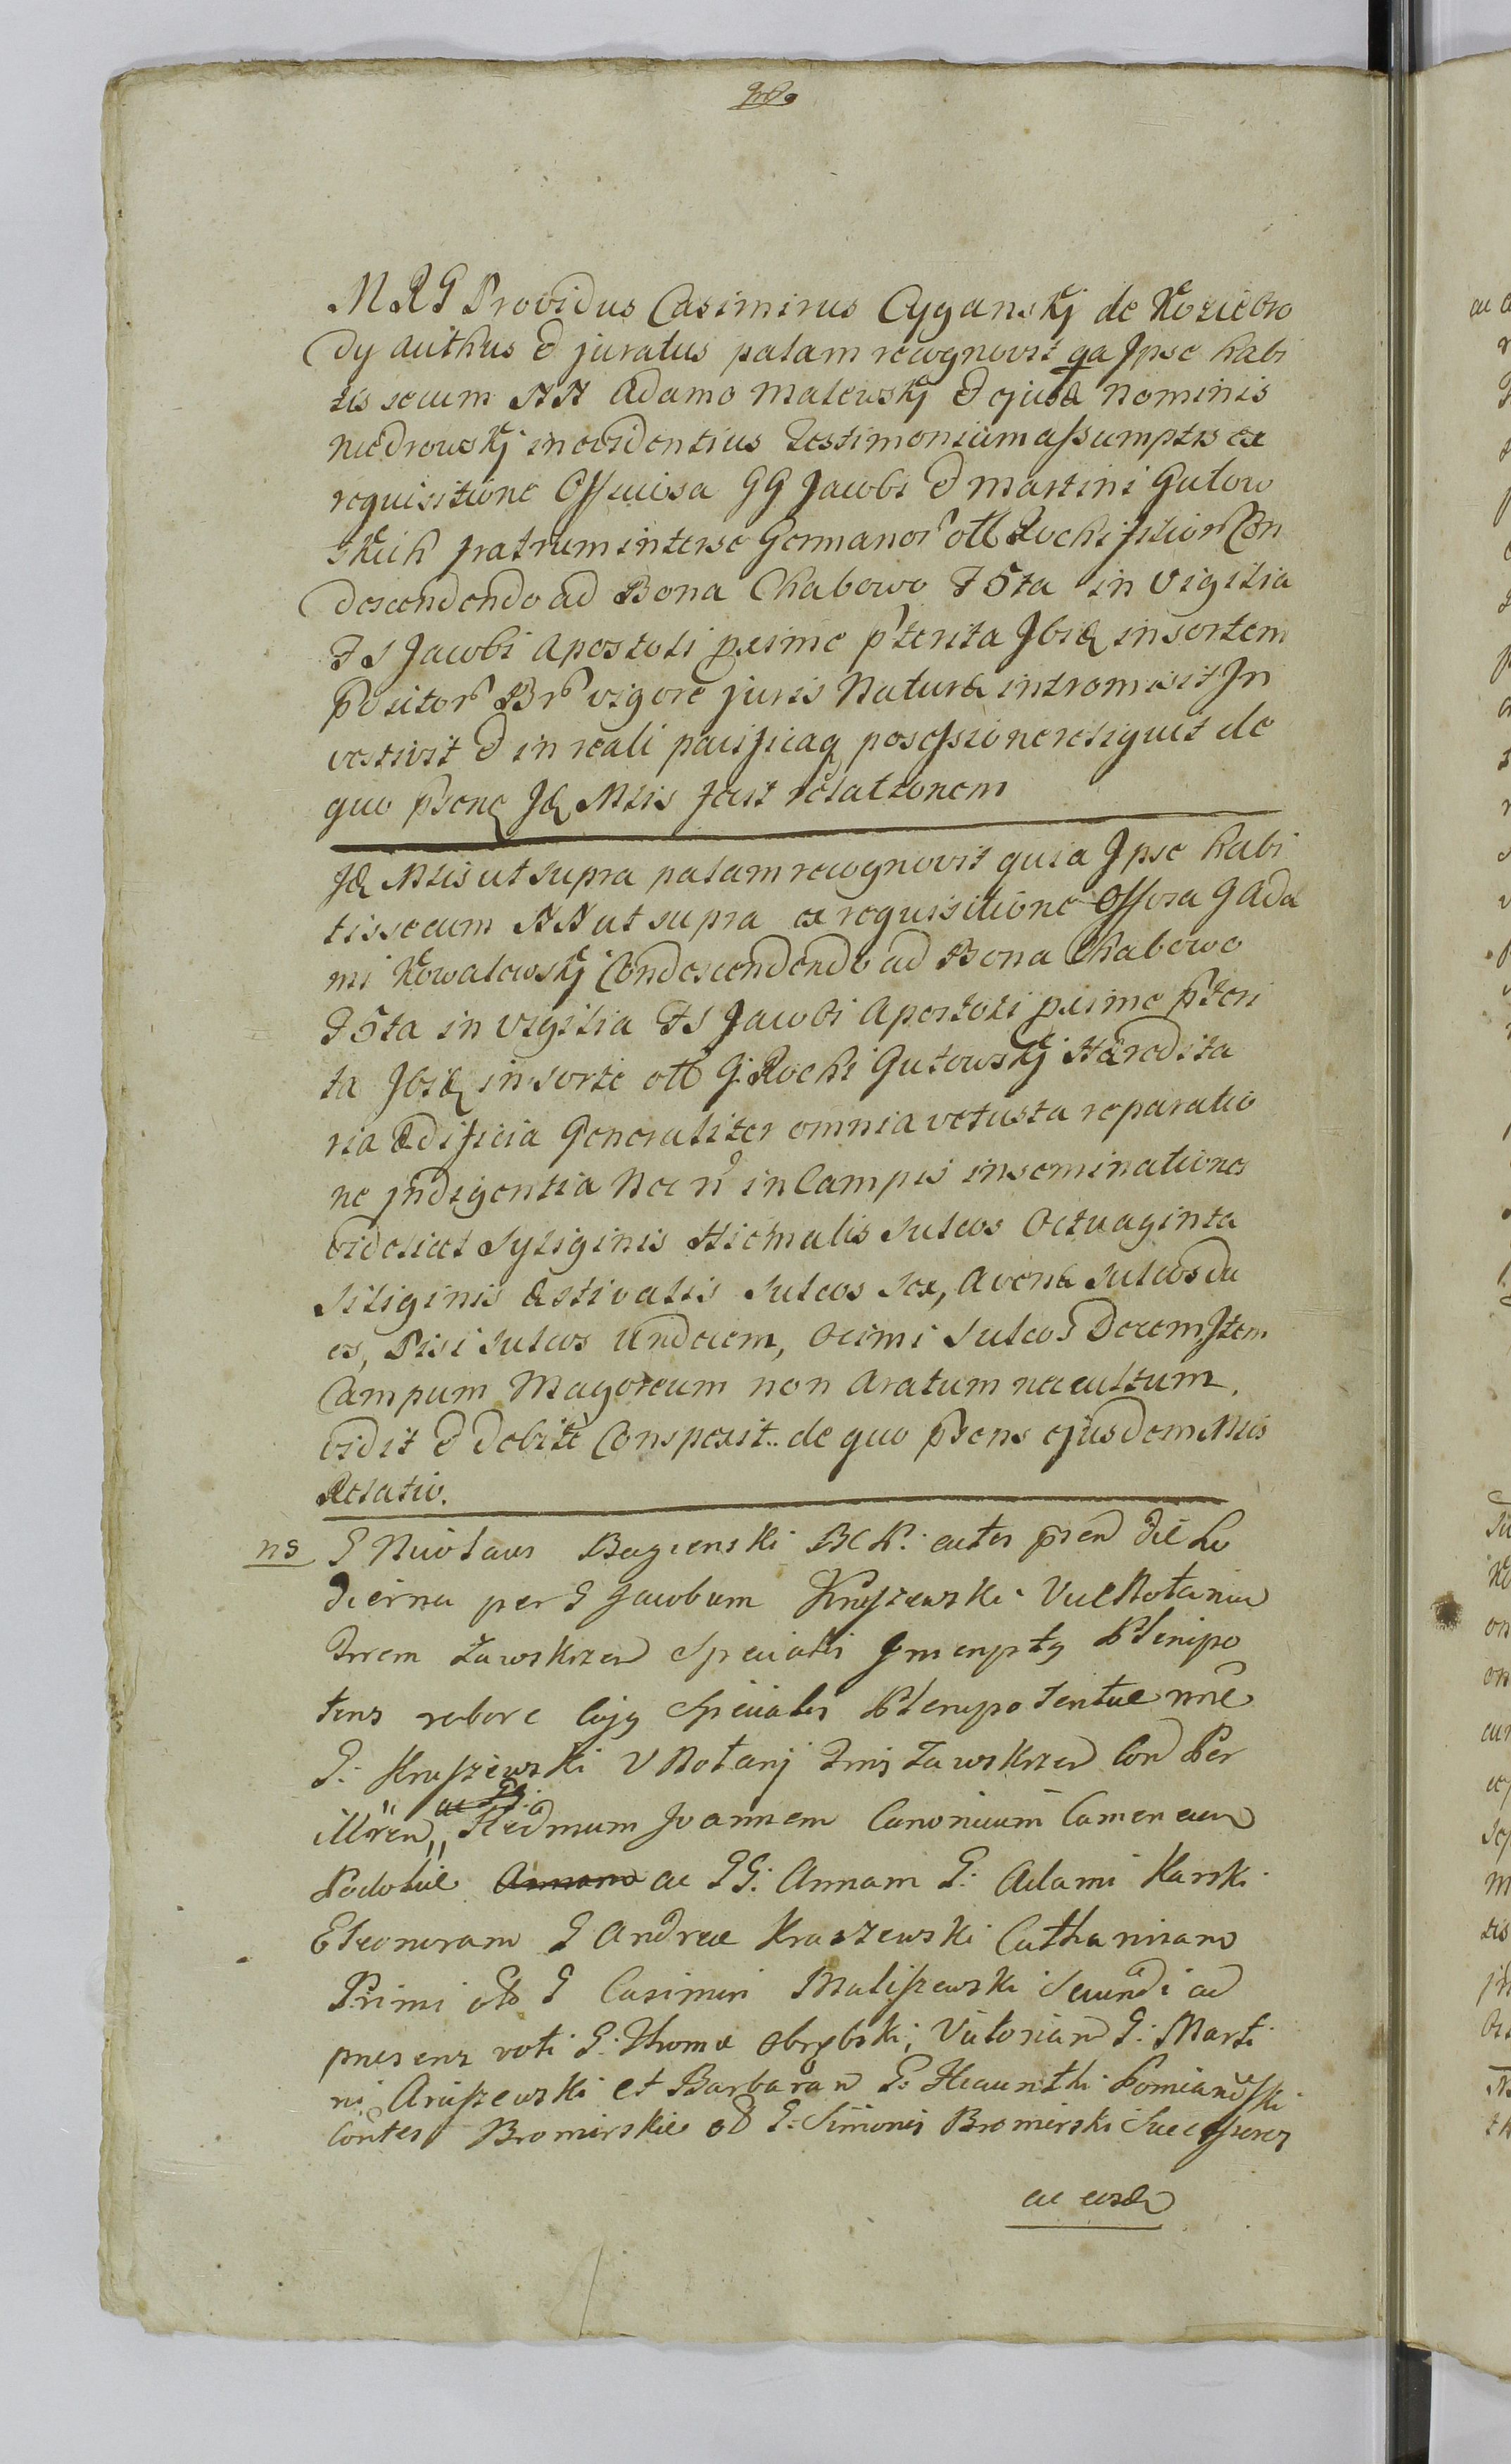 M R G Providus Casimirus Cyganskj de Koziebro
dy authus & juratus palam recognovit qa Ipse habi
tis secum NN Adamo Malewskj & ejusd Nominis
Niedrowskj in evidentius Testimonium assumptis ex
requisitione Officiosa GG Jacobi & Martini Gutow
skich fratrum interse Germanor olt Rochi filior Con
descendendo ad Bona Chabowo F 5ta in Vigilia
F S Jacobi Apostoli pxime pterita Ibiq in sortem
positor Br vigore juris Naturæ intromisit In
vestivit & in reali pacificaq posessione reliquit de
quo psens Id Mlis fecit relationem
Id Mlis ut supra palam recognovit quia Ipse habi
tis secum NN ut supra ex requisitione Offosa G Ada
mi Kowalewskj Condescendendo ad Bona Chabowo
F 5ta in vigilia F S Jacobi Apostoli pxime pteri
ta Ibiq in sorte olt G. Rochi Gutowskj Hæredita
ria Ædificia Generaliter omnia vetusta reparatio
ne indigentia Nec n in Campis inseminationes
videlicet Syliginis Hiemalis Sulcos Octuaginta
Siliginis æstivalis Sulcos Sex, Avenæ Sulcos du
os, Pisi Sulcos Undecem, Ocimi Sulcos Decem Item
Campum Magoreum non Aratum nec cultum
vidit & debite Conspexit. de quo psens ejusdem Mlis
Relatio.
ns G Nicolaus Bagienski B C P. eates psen die ho
dierna per G Jacobum Kraszewski Vice
Trrem Zawskrzen Speciali Plenipo
tens robore Cujq Specialis Plenipotentiæ nne
G. Kraszewski V Trris Zawskrzen Con Per
illren ac Rdmum Joannem Canonicum Camenecen
Podoliæ Annam ac GG. Annam G. Adami Karski
Eleonoram G Andreæ Kraszewski Catharinam
Primi olt G Casimiri Maliszewski Secundi ad
præsens voti G. Thomæ Obrębski, Victoriam G. Marti
ni Aruszewski et Barbaram G. Hiacinthi Pomianoski
Contes Bromirskie olt G. Simonis Bromirski Successores
ac eosd